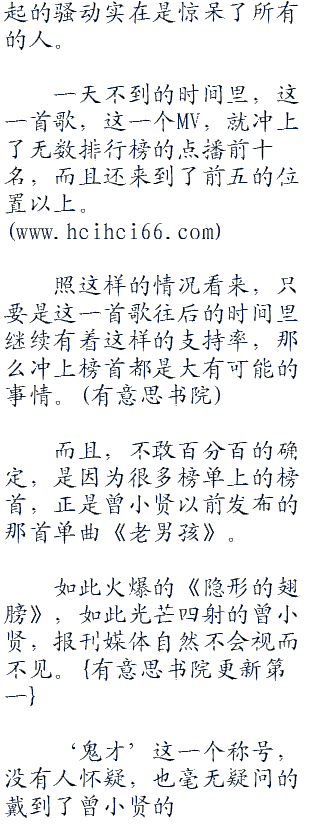 起的骚动实在是惊呆了所有
的人。
一天不到的时间里，这
一首歌，这一个MV，就冲上
了无数排行榜的点播前十
名，而且还来到了前五的位
置以上。
(www.hcihci66.com)
照这样的情况看来，只
要是这一首歌往后的时间里
继续有着这样的支持率，那
么冲上榜首都是大有可能的
事情。(有意思书院)
而且，不敢百分百的确
定，是因为很多榜单上的榜
首，正是曾小贤以前发布的
那首单曲《老男孩》。
如此火爆的《隐形的翅
膀》，如此光芒四射的曾小
贤，报刊媒体自然不会视而
不见。{有意思书院更新第
一}
‘鬼才’这一个称号，
没有人怀疑，也毫无疑问的
戴到了曾小贤的